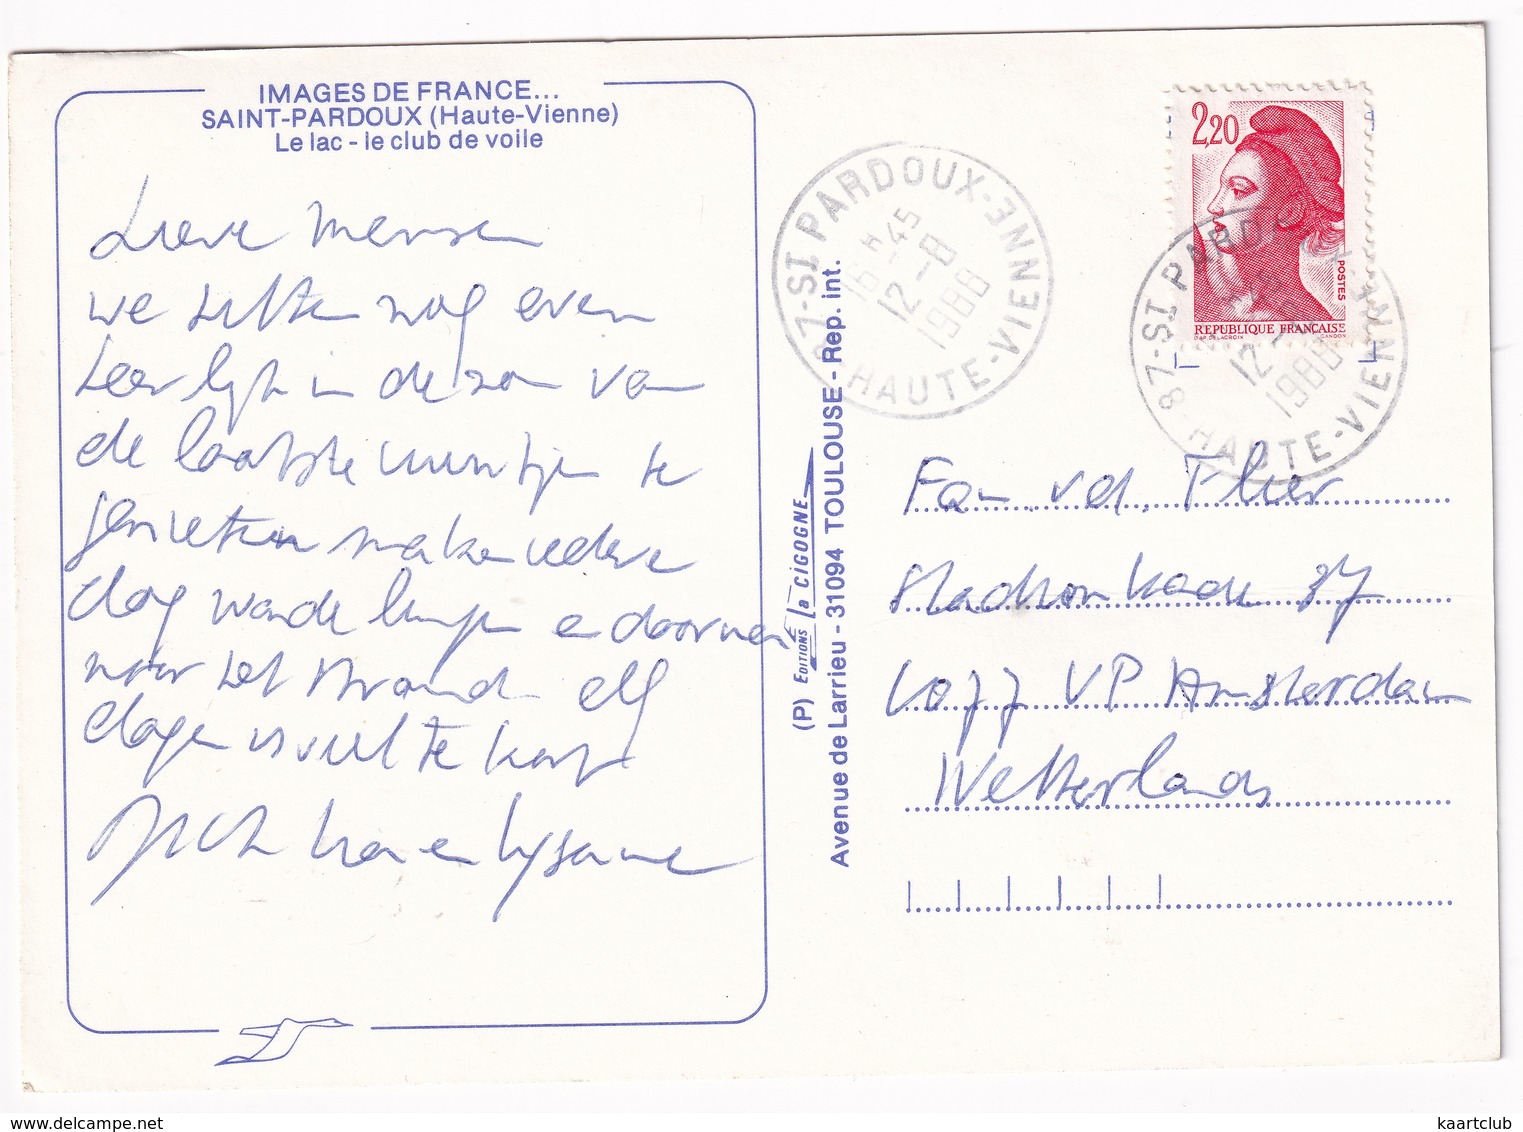 IMAGES DE FRANCE...
SAINT-PARDOUX (Haute-Vienne)
Le lac - le club de voile
Lieve mensen
we zitten nog even
heerlijk in de zon van
de laatste uurtjes te
genieten maken iedere
dag wandelingen en doorwer
naar het strand elf
dagen is veel te kort
en
(P) EDITIONS la CIGOGNE
Avenue de Larrieu - 31094 TOULOUSE - Rep. int.
87-ST PARDOUX-
HAUTE-VIENNE
16H45
12-8
1988
2,20
POSTES
REPUBLIQUE FRANÇAISE
D'AP. DELACROIX GANDON
87-ST PARDOUX-
HAUTE-VIENNE
12-
1988
Fam. v.d. Flier
Stadionkade 37
1077 VP Amsterdam
Netherlands
kaartclub